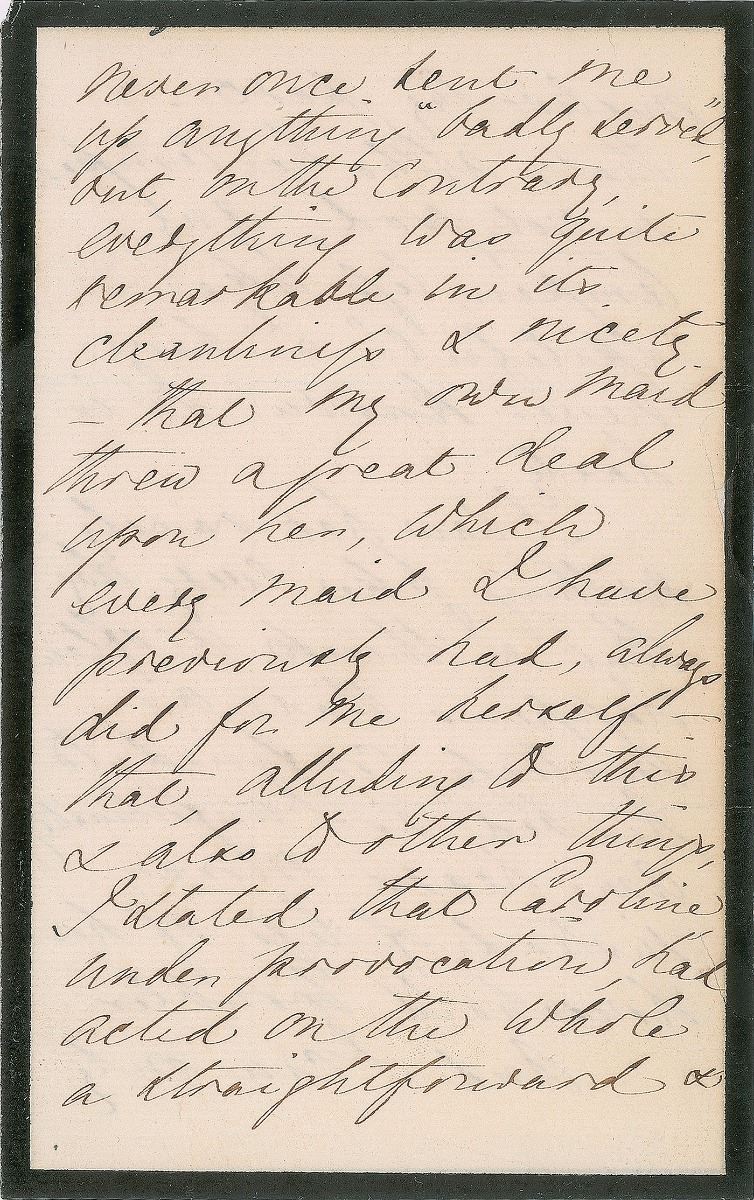 never once sent me
up anything "badly served",
but, on the contrary,
everything was quite
remarkable in its
cleanliness & nicety
– that my own maid
threw a great deal
upon her, which
every maid I have
previously had, always
did for me herself –
that, alluding to this
& also to other things,
I stated that Caroline,
under provocation, had
acted on the whole
a straightforward &